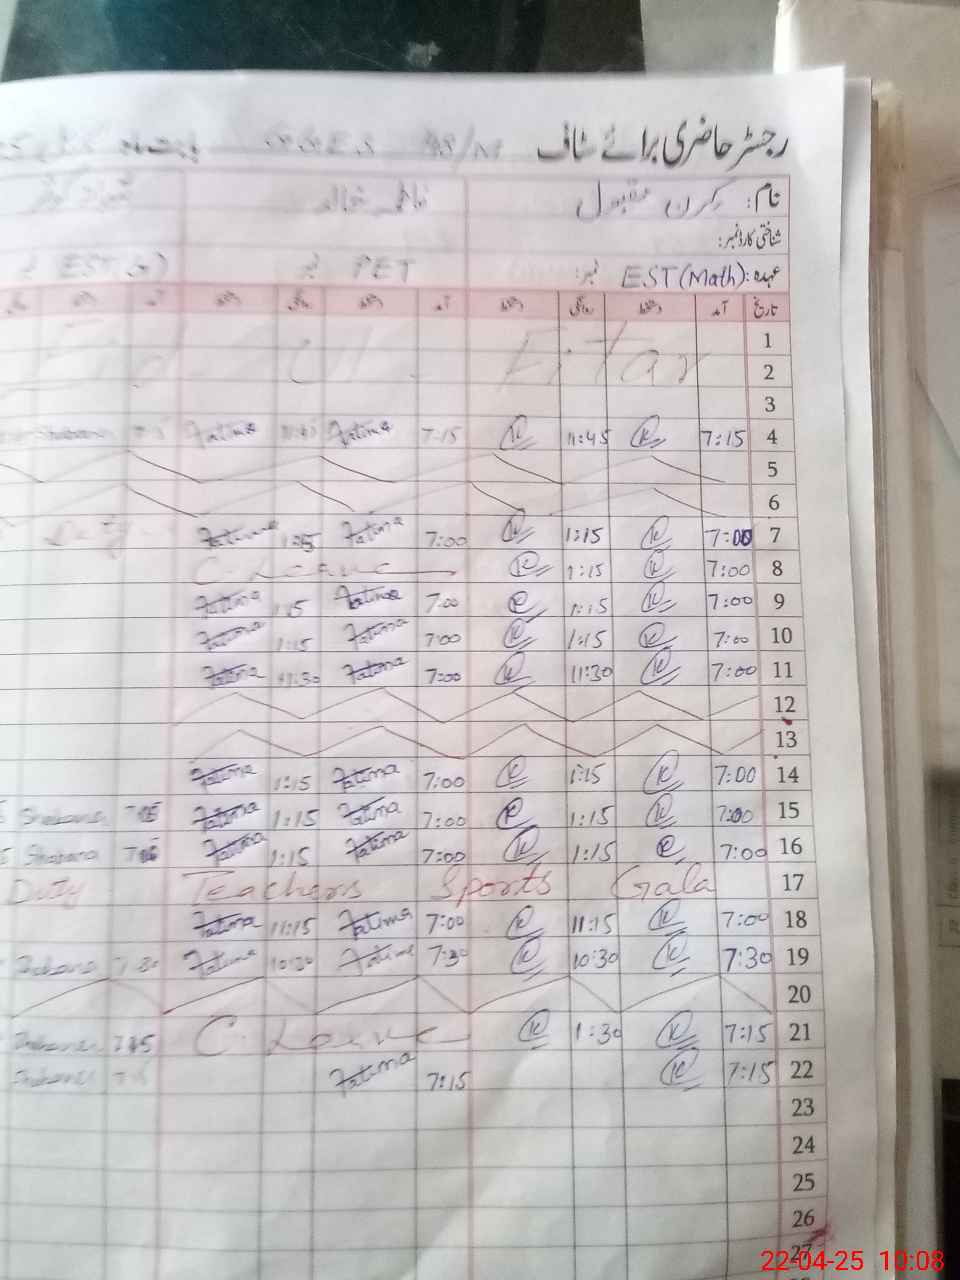 رجسٹر حاضری برائے سٹاف
نام: کرن مقبول فاطمہ خالد
شناختی کارڈ نمبر:
عہدہ: EST (Math) نمبر: PET نمبر EST
تاریخ آمد دستخط روانگی دستخط آمد دستخط روانگی دستخط آمد
1
2
3
4 7:15 K 11:45 K 7:15 Fatima Fatima Shabana
5
6
7 7:00 K 1:15 K 7:00 Fatima 1:15 Fatima
8 7:00 K 1:15 K C. Leave
9 7:00 K 1:15 K 7:00 Fatima 1:15 Fatima
10 7:00 K 1:15 K 7:00 Fatima 1:15 Fatima
11 7:00 K 11:30 K 7:00 Fatima 11:30 Fatima
12
13
14 7:00 K 1:15 K 7:00 Fatima 1:15 Fatima
15 7:00 K 1:15 K 7:00 Fatima 1:15 Fatima Shabana
16 7:00 K 1:15 K 7:00 Fatima 1:15 Fatima Shabana
Duty Teachers Sports Gala 17
18 7:00 K 11:15 K 7:00 Fatima 11:15 Fatima
19 7:30 K 10:30 K 7:30 Fatima 10:30 Fatima 7:30 Shabana
20
21 7:15 K 1:30 K C. Leave Shabana
22 7:15 K 7:15 Fatima Shabana
23
24
25
26
27
22-04-25 10:08